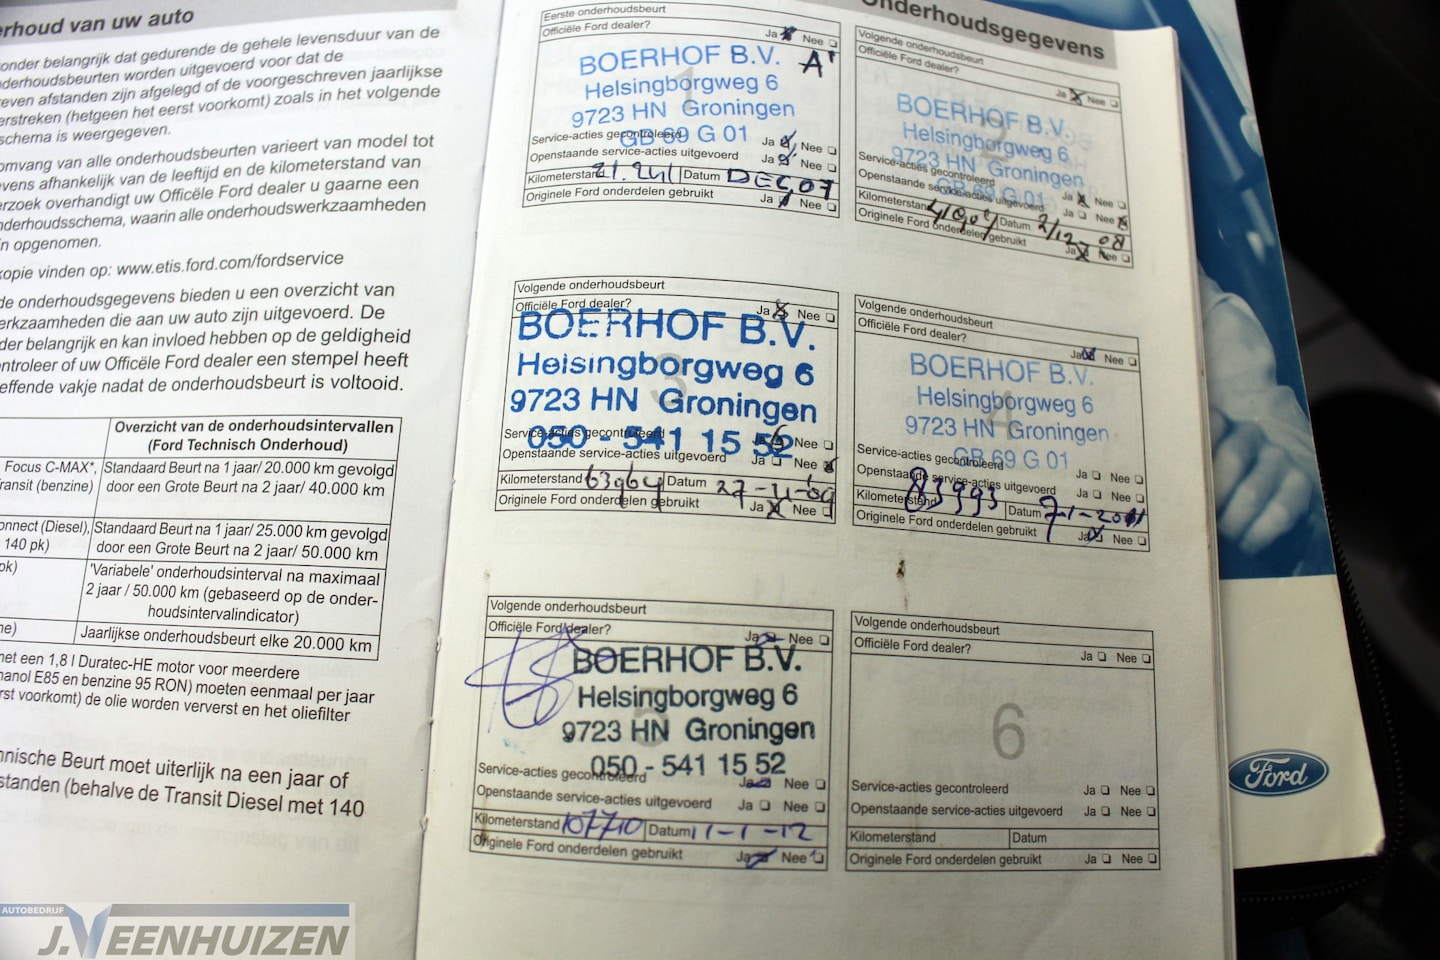 erhoud van uw auto
onder belangrijk dat gedurende de gehele levensduur van de
nderhoudsbeurten worden uitgevoerd voor dat de
even afstanden zijn afgelegd of de voorgeschreven jaarlijkse
erstreken (hetgeen het eerst voorkomt) zoals in het volgende
schema is weergegeven.
omvang van alle onderhoudsbeurten varieert van model tot
evens afhankelijk van de leeftijd en de kilometerstand van
erzoek overhandigt uw Officële Ford dealer u gaarne een
nderhoudsschema, waarin alle onderhoudswerkzaamheden
n opgenomen.
kopie vinden op: www.etis.ford.com/fordservice
de onderhoudsgegevens bieden u een overzicht van
erkzaamheden die aan uw auto zijn uitgevoerd. De
der belangrijk en kan invloed hebben op de geldigheid
ntroleer of uw Officële Ford dealer een stempel heeft
effende vakje nadat de onderhoudsbeurt is voltooid.
Overzicht van de onderhoudsintervallen
(Ford Technisch Onderhoud)
Focus C-MAX*,
ransit (benzine)
Standaard Beurt na 1 jaar/ 20.000 km gevolgd
door een Grote Beurt na 2 jaar/ 40.000 km
onnect (Diesel),
140 pk)
Standaard Beurt na 1 jaar/ 25.000 km gevolgd
door een Grote Beurt na 2 jaar/ 50.000 km
pk)
'Variabele' onderhoudsinterval na maximaal
2 jaar / 50.000 km (gebaseerd op de onder-
houdsintervalindicator)
ne)
Jaarlijkse onderhoudsbeurt elke 20.000 km
met een 1,8 l Duratec-HE motor voor meerdere
hanol E85 en benzine 95 RON) moeten eenmaal per jaar
rst voorkomt) de olie worden ververst en het oliefilter
hnische Beurt moet uiterlijk na een jaar of
standen (behalve de Transit Diesel met 140
Onderhoudsgegevens
Eerste onderhoudsbeurt
Officiële Ford dealer?
Ja Nee
BOERHOF B.V.
A
Helsingborgweg 6
9723 HN Groningen
GB 69 G 01
1
Service-acties gecontroleerd
Ja Nee
Openstaande service-acties uitgevoerd
Ja Nee
Kilometerstand 21.241 Datum DEC 07
Originele Ford onderdelen gebruikt Ja Nee
Volgende onderhoudsbeurt
Officiële Ford dealer?
Ja Nee
BOERHOF B.V.
Helsingborgweg 6
9723 HN Groningen
GB 69 G 01
2
Service-acties gecontroleerd
Ja Nee
Openstaande service-acties uitgevoerd
Ja Nee
Kilometerstand Datum 2/12-08
Originele Ford onderdelen gebruikt Ja Nee
Volgende onderhoudsbeurt
Officiële Ford dealer? Ja Nee
BOERHOF B.V.
Helsingborgweg 6
9723 HN Groningen
050 - 541 15 52
3
Service-acties gecontroleerd Ja Nee
Openstaande service-acties uitgevoerd Ja Nee
Kilometerstand 63964 Datum 27-11-09
Originele Ford onderdelen gebruikt Ja Nee
Volgende onderhoudsbeurt
Officiële Ford dealer?
Ja Nee
BOERHOF B.V.
Helsingborgweg 6
9723 HN Groningen
GB 69 G 01
4
Service-acties gecontroleerd Ja Nee
Openstaande service-acties uitgevoerd Ja Nee
Kilometerstand 83993 Datum 7-1-2011
Originele Ford onderdelen gebruikt Ja Nee
Volgende onderhoudsbeurt
Officiële Ford dealer? Ja Nee
BOERHOF B.V.
Helsingborgweg 6
9723 HN Groningen
050 - 541 15 52
5
Service-acties gecontroleerd Ja Nee
Openstaande service-acties uitgevoerd Ja Nee
Kilometerstand 107710 Datum 11-1-12
Originele Ford onderdelen gebruikt Ja Nee
Volgende onderhoudsbeurt
Officiële Ford dealer? Ja Nee
6
Service-acties gecontroleerd Ja Nee
Openstaande service-acties uitgevoerd Ja Nee
Kilometerstand Datum
Originele Ford onderdelen gebruikt Ja Nee
Ford
AUTOBEDRIJF
J. VEENHUIZEN